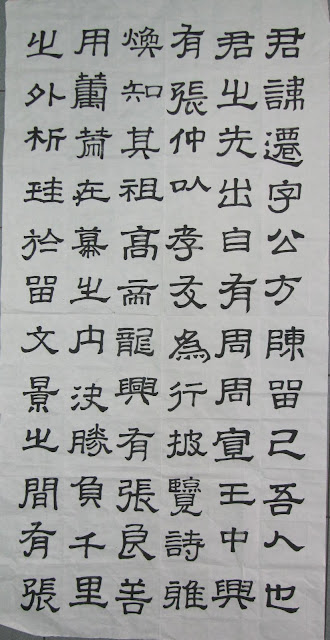 君諱遷字公方陳留己吾人也
君之先出自有周周宣王中興
有張仲以孝友為行披覽詩雅
煥知其祖高帝龍興有張良善
用籌策在幕之内決勝負千里
之外析珪於留文景之間有張